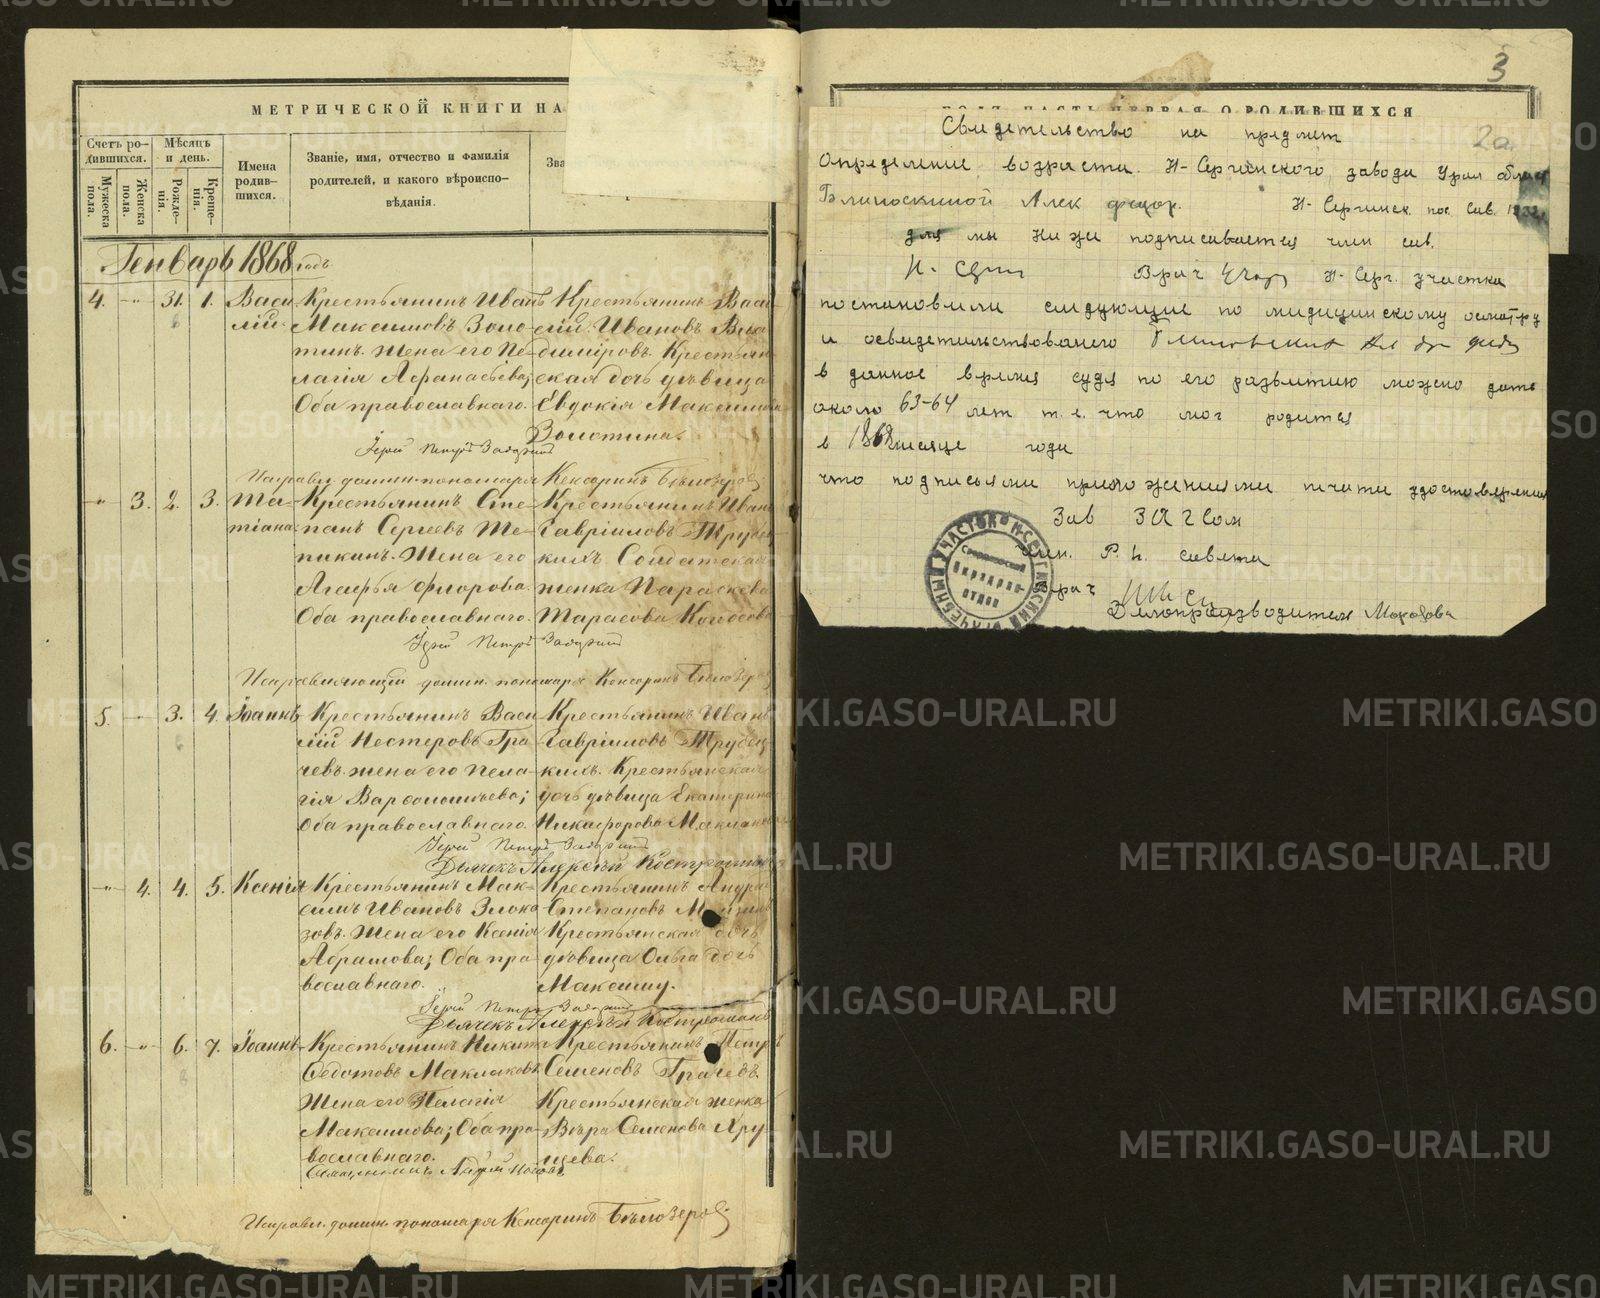 МЕТРИЧЕСКОЙ КНИГИ НА
Счетъ ро-
дившихся.
Мѣсяцъ
и день.
Мужеска
пола.
Женска
пола.
Рожде-
нія.
Креще-
нія.
Имена
родив-
шихся.
Званіе, имя, отчество и фамилія
родителей, и какого вѣроиспо-
вѣданія.
Зва
Генварь 1868 годъ
4. " 31. 1. Васи-
лій.
Крестьянинъ Иванъ
Максимовъ Золо-
тинъ. Жена его Пе-
лагія Афанасьева;
Оба православнаго.
Крестьянинъ Васи-
лій Ивановъ Вла-
диміровъ. Крестьян-
ская дочь дѣвица
Евдокія Максимова
Золотина.
Іерей Петръ
Исправл. должн. пономаря Кенсоринъ Бѣлозеровъ
" 3. 2. 3. Та-
тіана.
Крестьянинъ Сте-
панъ Сергеевъ Те-
пикинъ. Жена его
Агафья Фпорова.
Оба православнаго.
Крестьянинъ Иванъ
Гавріиловъ
Солдатская
женка Параскева
Тарасова
Іерей Петръ
Исправляющій должн. пономаря Кенсоринъ Бѣлозеровъ
5. " 3. 4. Іоаннъ
Крестьянинъ Васи-
лій Нестеровъ Гра-
чевъ. жена его Пела-
гія Варфоломеева;
Оба православнаго.
Крестьянинъ Иванъ
Гавріиловъ
Крестьянская
дочь дѣвица Екатерина
Никифорова Маклакова
Іерей Петръ
Дьячекъ Алексѣй Костроминъ
" 4. 4. 5. Ксенія
Крестьянинъ Мак-
симъ Ивановъ Злока-
зовъ. Жена его Ксенія
Абрамова; Оба пра-
вославнаго.
Крестьянинъ Андрей
Степановъ
Крестьянская дочь
дѣвица Ольга дочь
Максиму.
Іерей Петръ
Дьячекъ Алексѣй Костроминъ
6. " 6. 7. Іоаннъ
Крестьянинъ Никита
Федотовъ Маклаковъ.
Жена его Пелагія
Максимова; Оба пра-
вославнаго.
Крестьянинъ Петръ
Семеновъ Грачевъ.
Крестьянская женка
Вѣра Семенова Хру-
щева.
Священникъ Андрей
Исправл. должн. пономаря Кенсоринъ Бѣлозеровъ
3
ГОДЪ, ЧАСТЬ ПЕРВАЯ О РОДИВШИХСЯ
2а
Свидетельство на предмет
Определение возраста. Н-Сергинского завода Урал област
Алек федор. Н-Сергинск. пос. Сов. 1932
для мы ниже подписавшиеся член сов.
Врач Н-Серг. участка
постановили следующие по медицинскому осмотру
и освидетельствованего
в данное время судя по его развитию можно дать
около 63-64 лет т.е. что мог родится
в 1868 месяце года
что подписями приложениями печати удостоверяния
Зав ЗАГСом
Член. Р. К. совета
Врач
Делопроизводител Морозова
METRIKI.GASO-URAL.RU